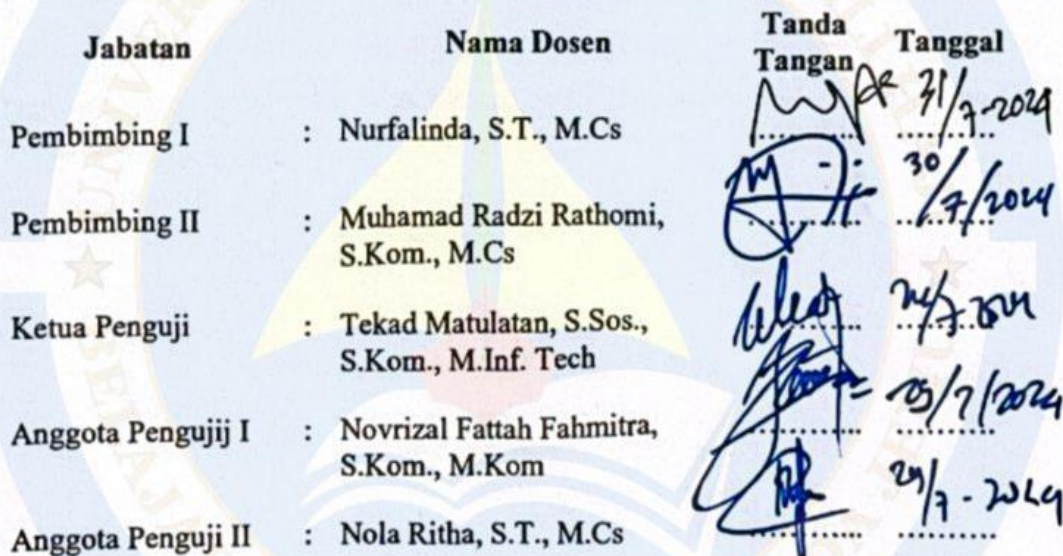 Jabatan Nama Dosen Tanda Tangan Tanggal
Pembimbing I : Nurfalinda, S.T., M.Cs 31/7-2024
Pembimbing II : Muhamad Radzi Rathomi, 30/7/2024
S.Kom., M.Cs
Ketua Penguji : Tekad Matulatan, S.Sos.,
S.Kom., M.Inf. Tech
Anggota Pengujij I : Novrizal Fattah Fahmitra, 29/7/2024
S.Kom., M.Kom
Anggota Penguji II : Nola Ritha, S.T., M.Cs 29/7-2024